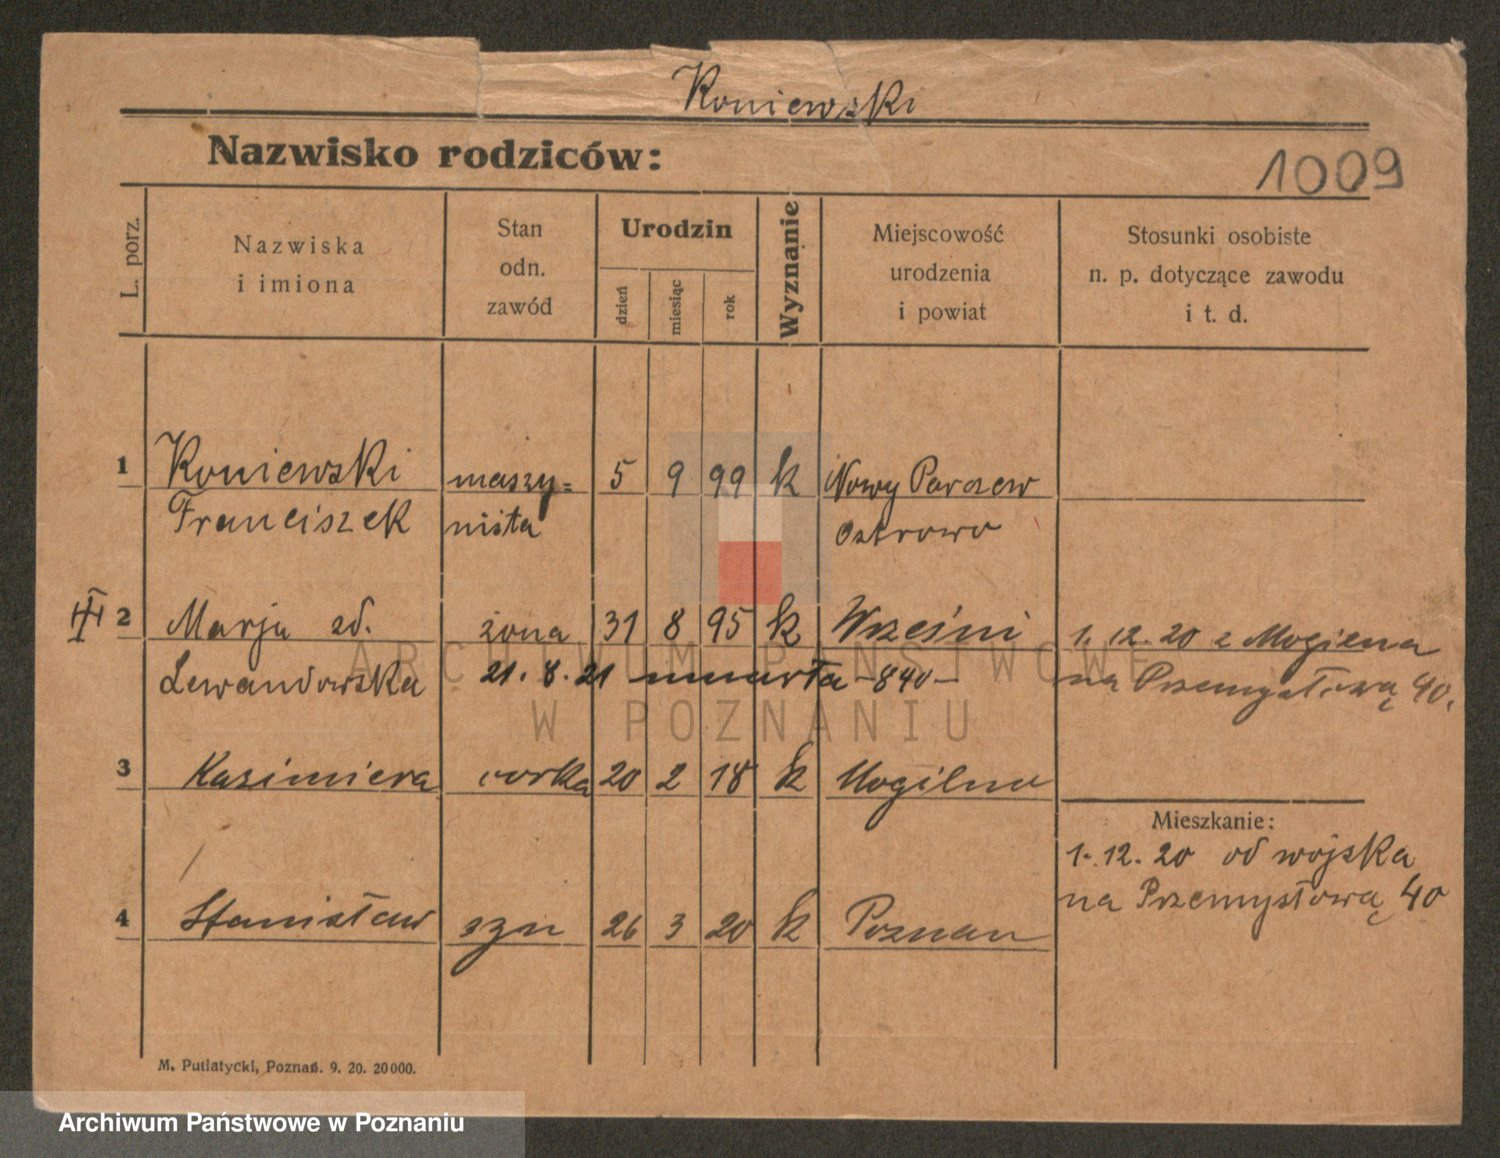 Koniewski
Nazwisko rodziców:
1009
L. porz.
Nazwiska
i imiona
Stan
odn.
zawód
Urodzin
dzień
miesiąc
rok
Wyznanie
Miejscowość
urodzenia
i powiat
Stosunki osobiste
n. p. dotyczące zawodu
i t. d.
1 Koniewski maszy= 5 9 99 k Nowy Parczew
Franciszek nista Ostrowo
2 Marja zd. żona 31 8 95 k Wrześni 1. 12. 20 z Mogilna
Lewandowska 21. 8. 21 umarła -840- na Przemysłową 40.
3 Kazimiera corka 20 2 18 k Mogilno
Mieszkanie:
1. 12. 20 od wojska
na Przemysłową 40
4 Stanisław syn 26 3 20 k Poznan
M. Putiatycki, Poznań. 9. 20. 20 000.
ARCHIWUM PAŃSTWOWE
W POZNANIU
Archiwum Państwowe w Poznaniu